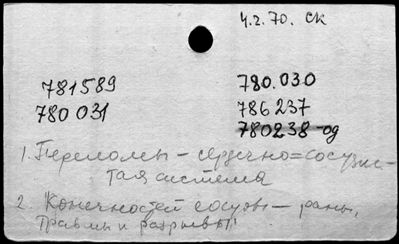 4.2.70. СК
781589 780.030
780031 786237
780238-од
1. Переломы – сердечно=сосудис-
тая система
2. Конечностей сосуды – раны,
травмы и разрывы